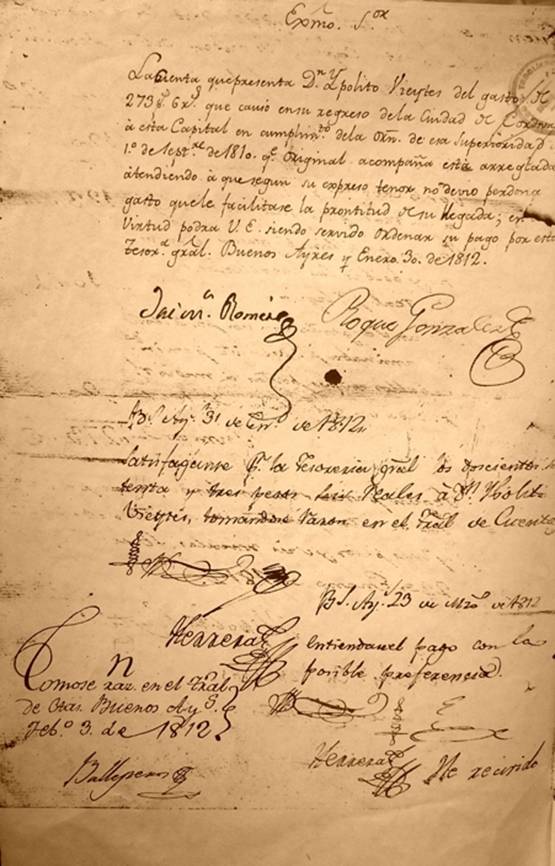 Exmo. S.or
La Cuenta que presenta D.n Ypolito Vieytes del gasto de
273 p.s 6 r.s que causó en su regreso de la Ciudad de Cordova
à esta Capital en cumplim.to de la Orn. de esa Superioridad
1.º de Sept.re de 1810. q.e original acompaña està arreglada
atendiendo à que segun su expreso tenor no devio perdonar
gasto que le facilitase la prontitud de su llegada; en
virtud podra V. E. siendo servido ordenar su pago por esta
Tesor.a gral. Buenos Ayres y Enero 30. de 1812.
Romero Roque Gonzalez
B.s Ay.s 31 de En.o de 1812
Satisfaganse p.r la Tesoreria gral los doscientos
tenta y tres pesos seis Reales à D.n Ypolito
Vieytes, tomandose razon en el Tral de Cuentas
B.s Ay.s 23 de Mzo de 1812
Herrera
entiendase el pago con la
posible preferencia.
Tomose raz. en el Tral
de Ctas. Buenos Ay.s
Feb.o 3. de 1812
Ballesteros
Herrera
He recivido